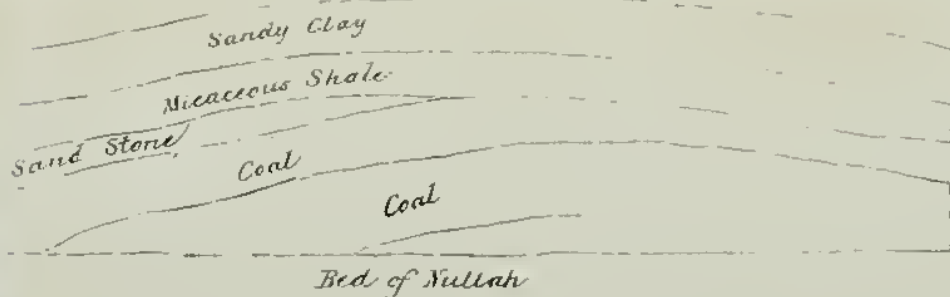 Sandy Clay
Micaceous Shale
Sand Stone
Coal
Coal
Bed of Nullah